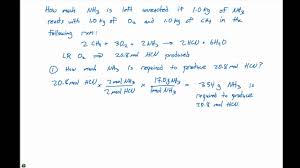 How much NH3 is left unreacted if 1.0 kg of NH3
reacts with 1.0 kg of O2 and 1.0 kg of CH4 in the
following rxn:
2 CH4 + 3O2 + 2NH3 → 2 HCN + 6H2O
LR O2 ⇒ 20.8 mol HCN produced
① How much NH3 is required to produce 20.8 mol HCN?
20.8 mol HCN × 2 mol NH3 / 2 mol HCN × 17.0 g NH3 / 1 mol NH3 = 354 g NH3 is
required to
produce
20.8 mol HCN